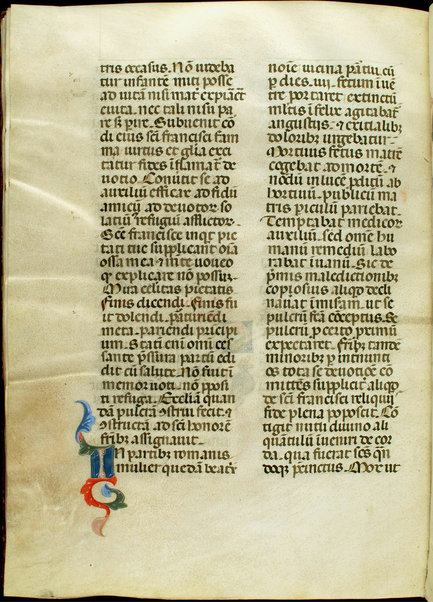 tris occasus. Nō uideba
tur infantē muti posse
ad uitā nisi mat̄ expiāct
e uita. nec tali nisu pa
Subuenit cō
di eius sc̄i francisci fam
ma uirtus et glīa exci
tatur fides
uotio. Conuitit se ad
auxiliū efficax. ad fidū
amicū ad deuotor̄ so
latiū refugiū afflictor̄.
Sc̄e francisce inqt pie
tati tue supplicant oīa
ossa mea & mēte uoueo
qꝫ explicare nō possū.
Mira celitas pietatis
finis dicendi. finis fu
it dolendi. pāturiēdi
meta. pariendi pricipi
um. Statī eni omīb; ces
sante pssura partū edi
dit cū salute. Nō fuit ī
memor uoti. nō pposi
ti refuga. Eccl̄iam quan
dā pulcrā ꝯstrui fecit. &
ꝯstructā ad sc̄i honorē
frīb; assignauit.
In partib; romanis
mulier quedam beatr̄
noīe uicina partui cū
p dies .iiii. fetum ī uē
tre portaret extinctū.
mltis īfelix agitabat̄
angustiis. & exitialib;
dolorib; urgebatur.
Mortuus fetus matrē
cogebat ad mortē. &
nōdū in lucē pditū ab
hortiuū. publicū ma
tris piculū pariebat.
Temptabat medicor̄
auxiliū. sed omē hu
manū remediū labo
rabat ī uanū. Sic de
pmis maledictionib;
copiosius aliqd decli
nauit ī misam. ut se
pulcrū fieret ꝯceptus. se
pulcrū p certo primū
expectaret. Frīb; tandē
minorib; p īternunti
os tota se deuotiōe cō
mittēs supplicit aliqd
de sc̄i francisci reliquiis
fide plena poposcit. Cō
tigit nutu diuino ali
quātulū īueniri de cor
da. qua fuerat sc̄s qn̄
doqꝫ precinctus. Mox ut